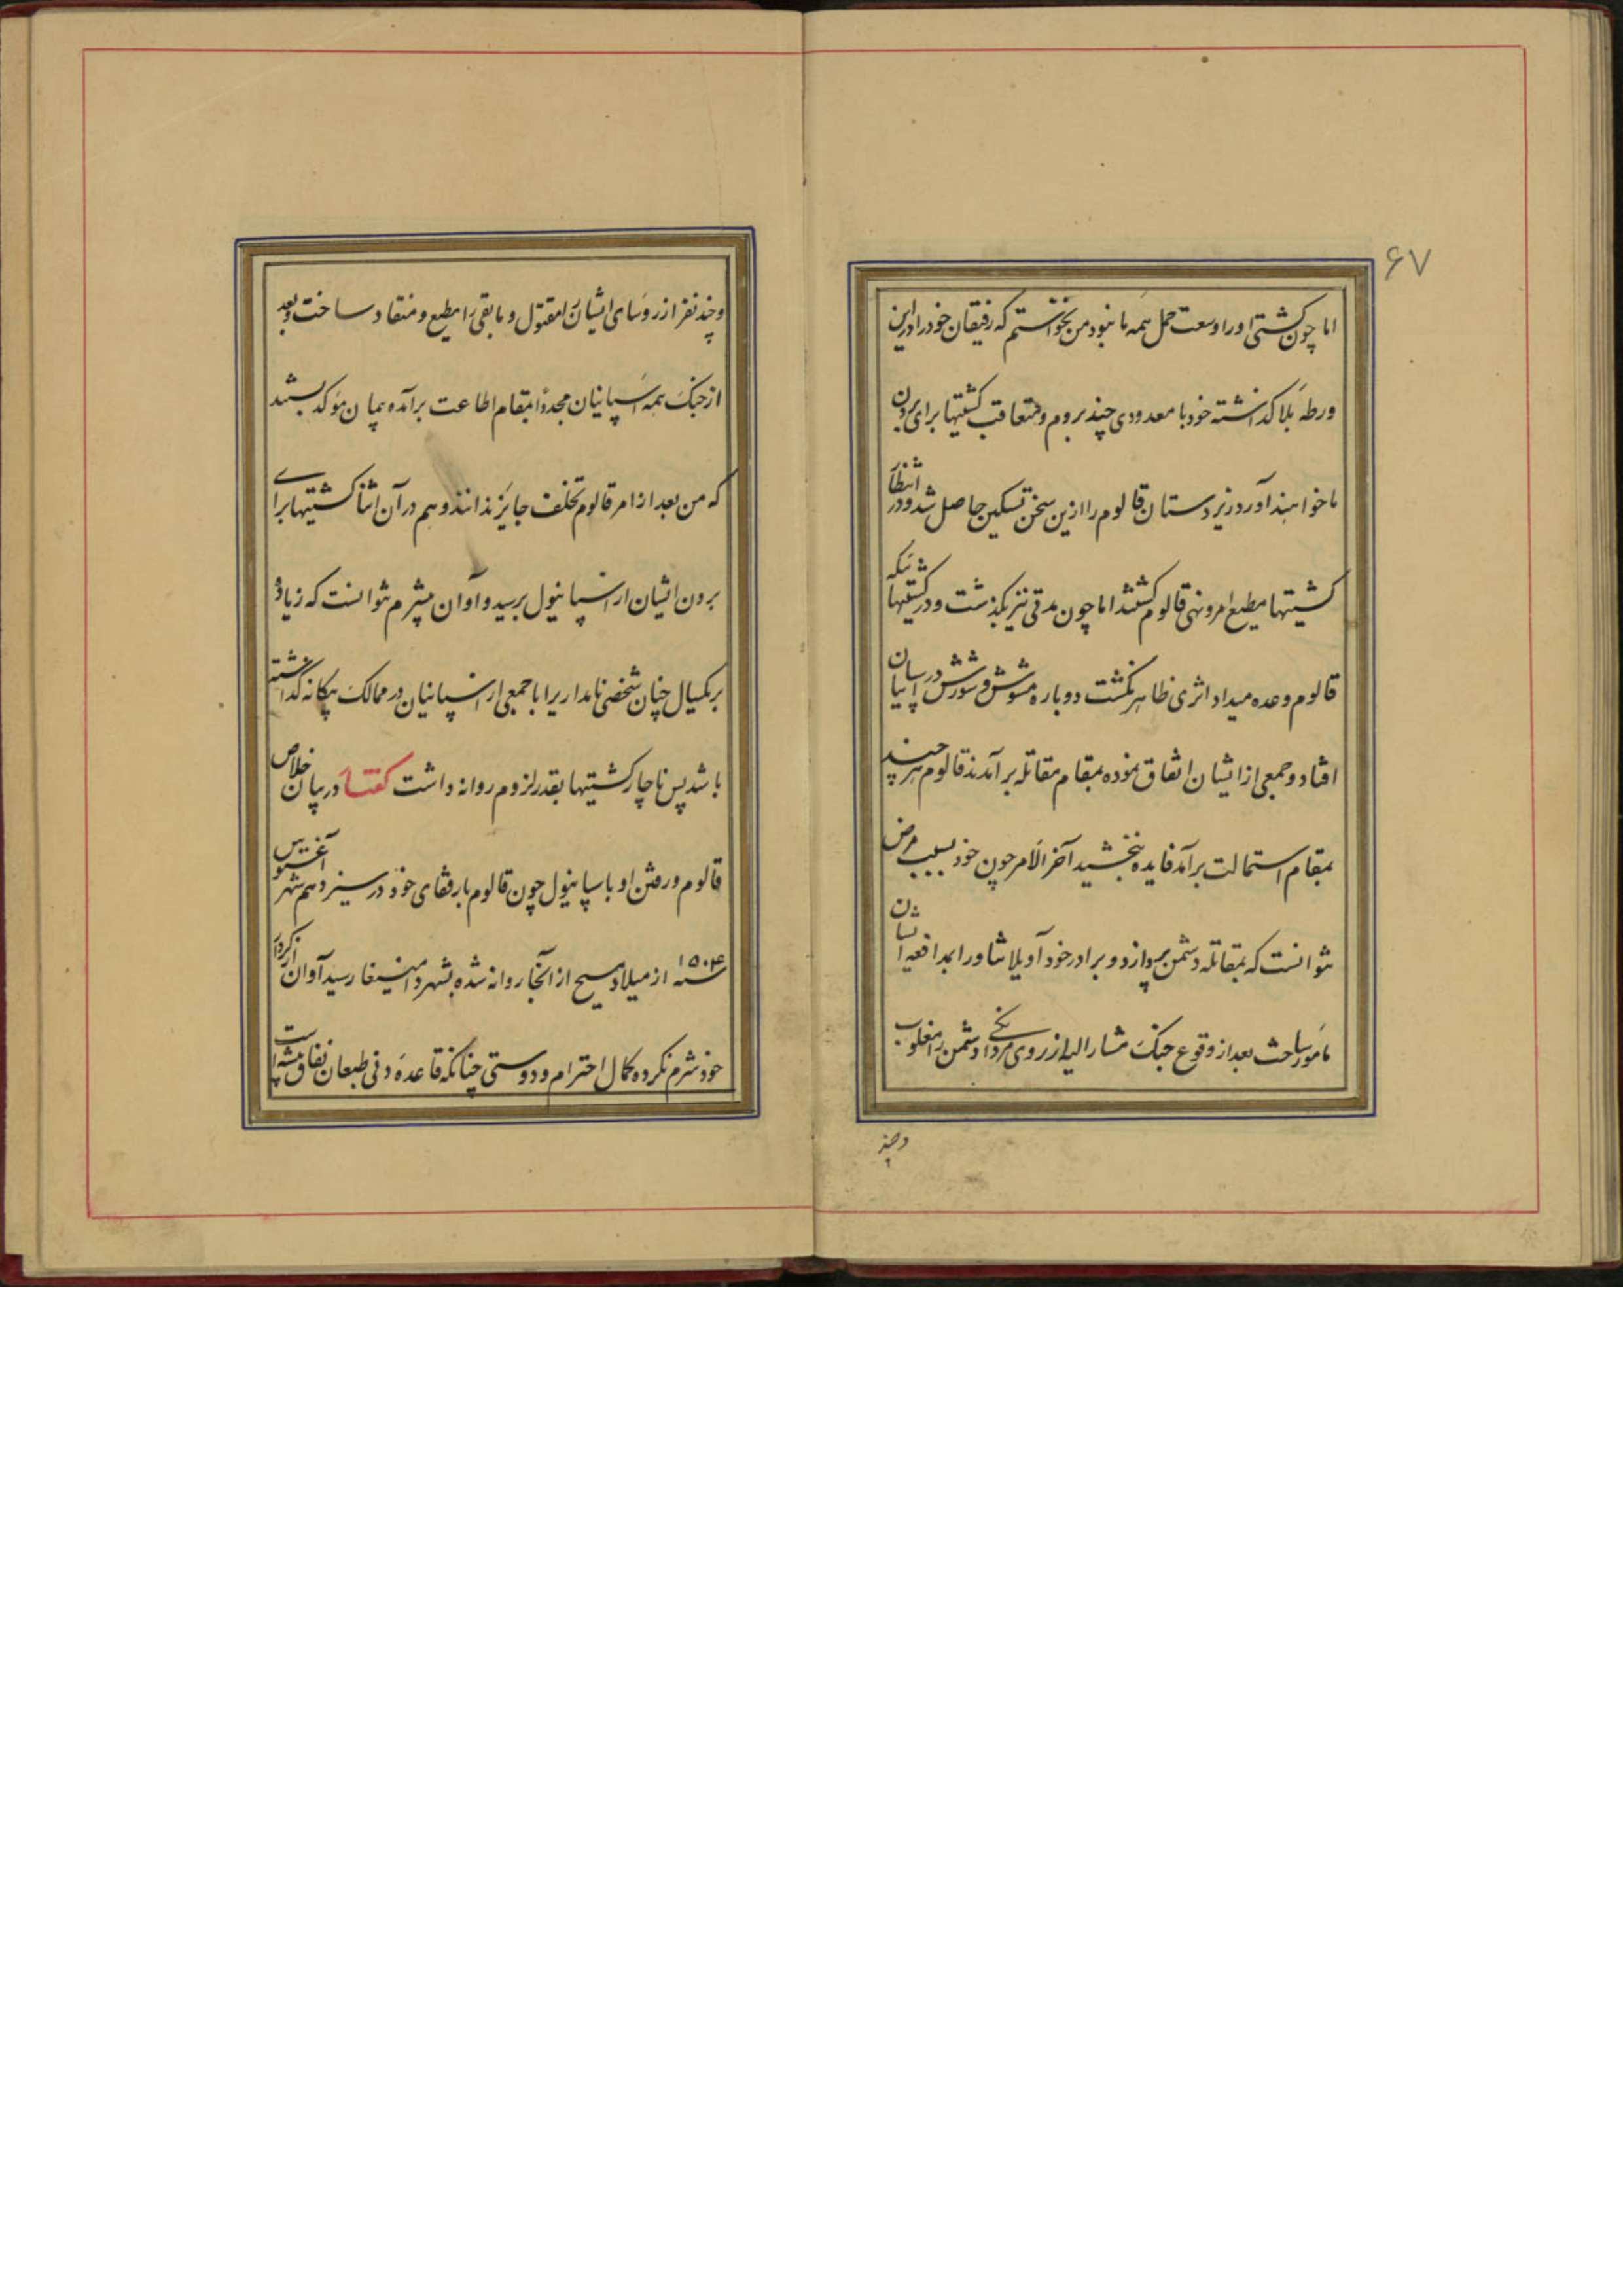 ۶۷
اما چون کشتی او را وسعت حمل همه ما نبود من نخواستم که رفیقان خود را در این
ورطه بلا گذاشته خود با معدودی چند بروم و متعاقب کشتیها برای بردن
ما خواهند آورد زیردستان قالوم را ازین سخن تسکین حاصل شد و در انتظار
کشتیها مطیع امر و نهی قالوم گشتند اما چون مدتی نیز بگذشت و در کشتیها ئیکه
قالوم وعده میداد اثری ظاهر نگشت دوباره شورش در میان اسپانیان
افتاد و جمعی از ایشان اتفاق نموده بمقام مقاتله برآمدند قالوم هر چند
بمقام استمالت برآمد فایده نبخشید آخر الامر چون خود بسبب مرض
نتوانست که بمقاتله دشمن پردازد و برادر خود آویلانتادور را بمدافعه ایشان
مامور ساخت بعد از وقوع جنگ مشارالیه از روی مردانگی دشمن را مغلوب
و چند
و چند نفر از روسای ایشان را مقتول و مابقی را مطیع و منقاد ساخت و بعد
از جنگ همه اسپانیان مجددا بمقام اطاعت برآمده پیمان موکد بستند
که من بعد از امر قالوم تخلف جایز ندانند و هم در آن اثنا کشتیها برای
بردن ایشان از اسپانیول برسید و آوان بیشرم نتوانست که زیاده
بر یکسال چنان شخص نامداریرا با جمعی از اسپانیان در ممالک بیگانه گذاشته
باشد پس ناچار کشتیها بقدر لزوم روانه داشت گفتار در بیان خلاص
قالوم و رفتن او باسپانیول چون قالوم با رفقای خود در سیزدهم شهر آغستوس
سنه ۱۵۰۴ از میلاد مسیح از آنجا روانه شده بشهر دامنیغا رسید آوان از کردار
خود شرم نکرده بکمال احترام و دوستی چنانکه قاعده دنی طبعان نفاق پیشه است